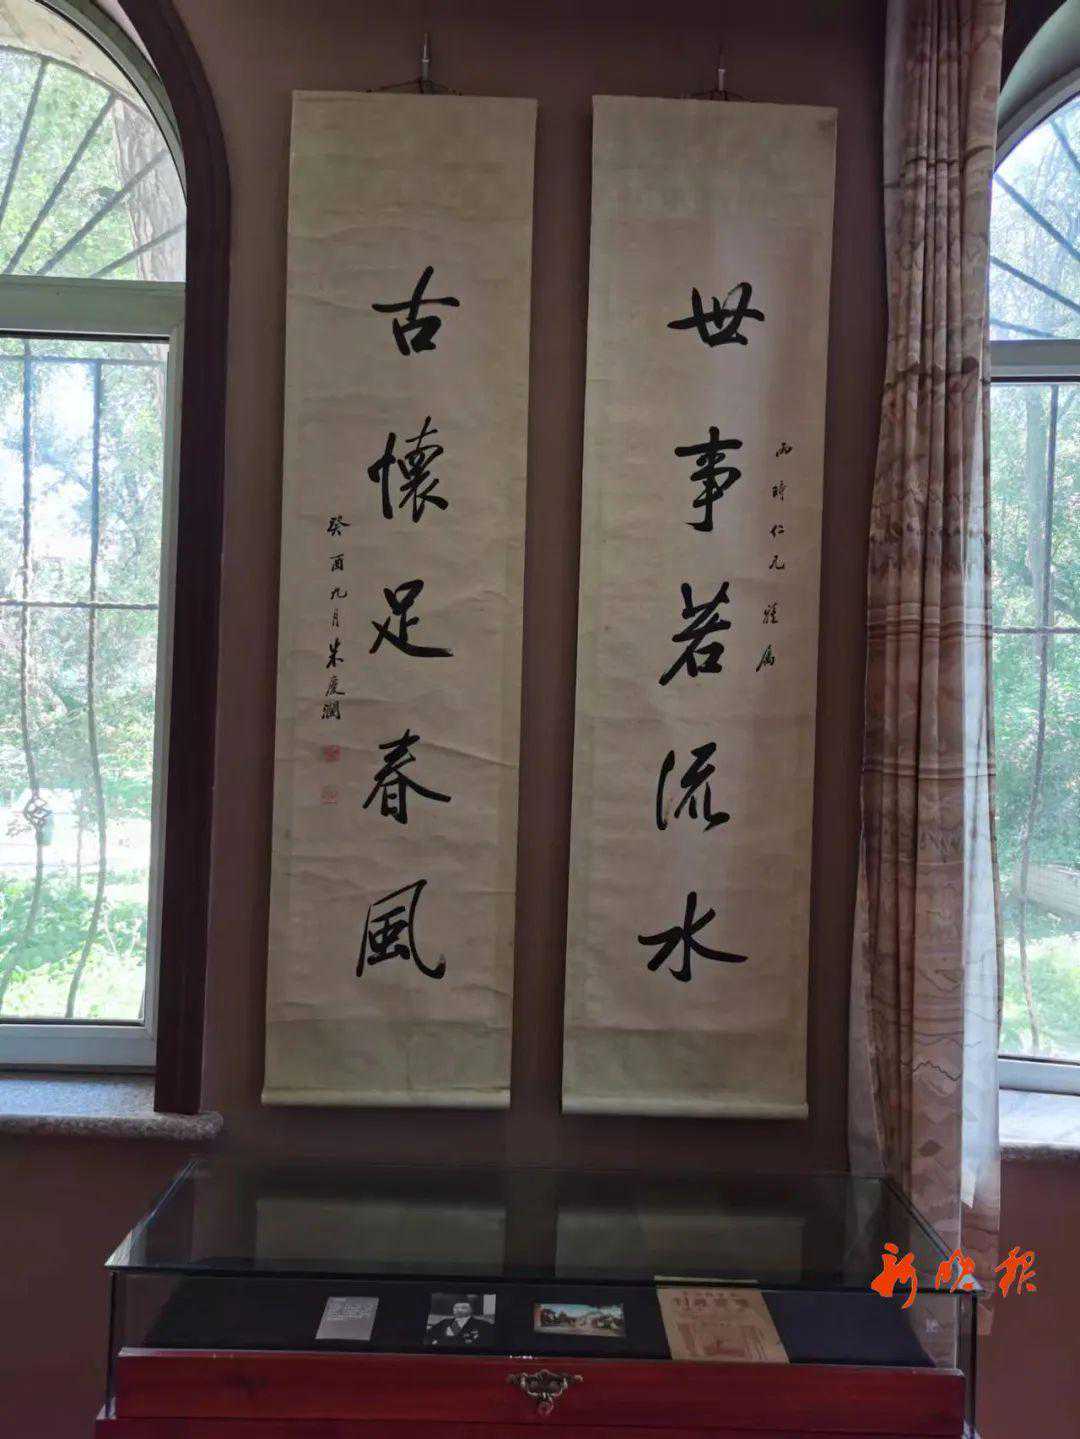 世事若流水
雨時仁兄雅属
古懷足春風
癸酉九月朱慶瀾
新晚报